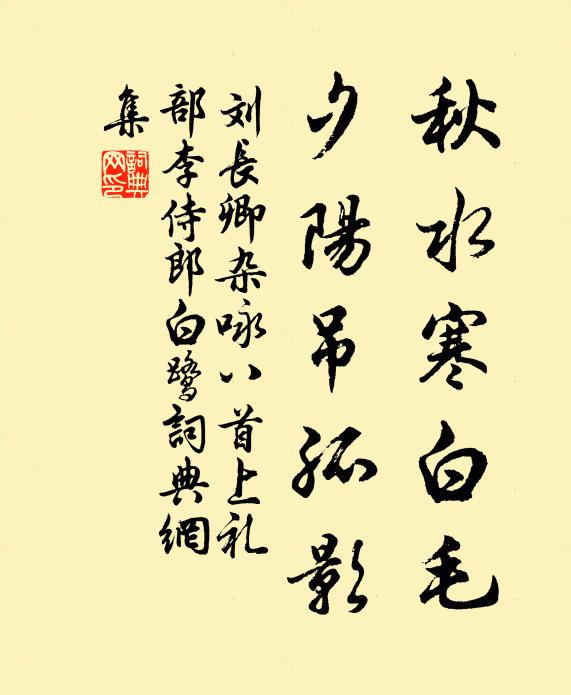 秋水寒白毛
夕陽吊孤影
刘長卿杂咏八首上礼
部李侍郎白鹭詞典網
集
詞典網印